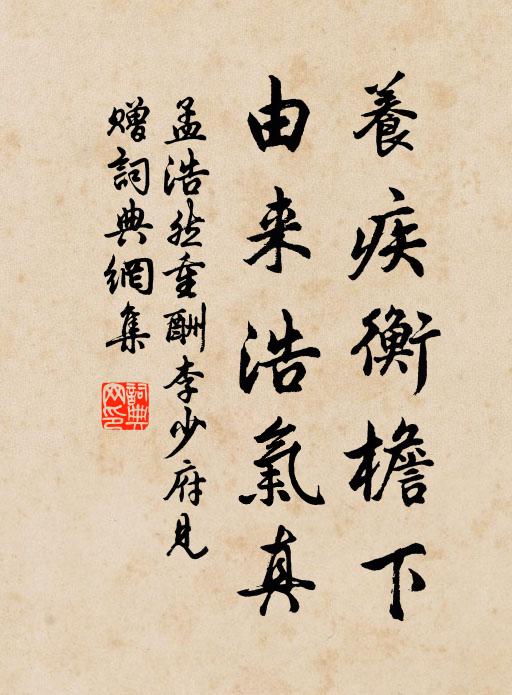 養疾衡檐下
由来浩氣真
孟浩然重酬李少府見
贈詞典網集
詞典
网印